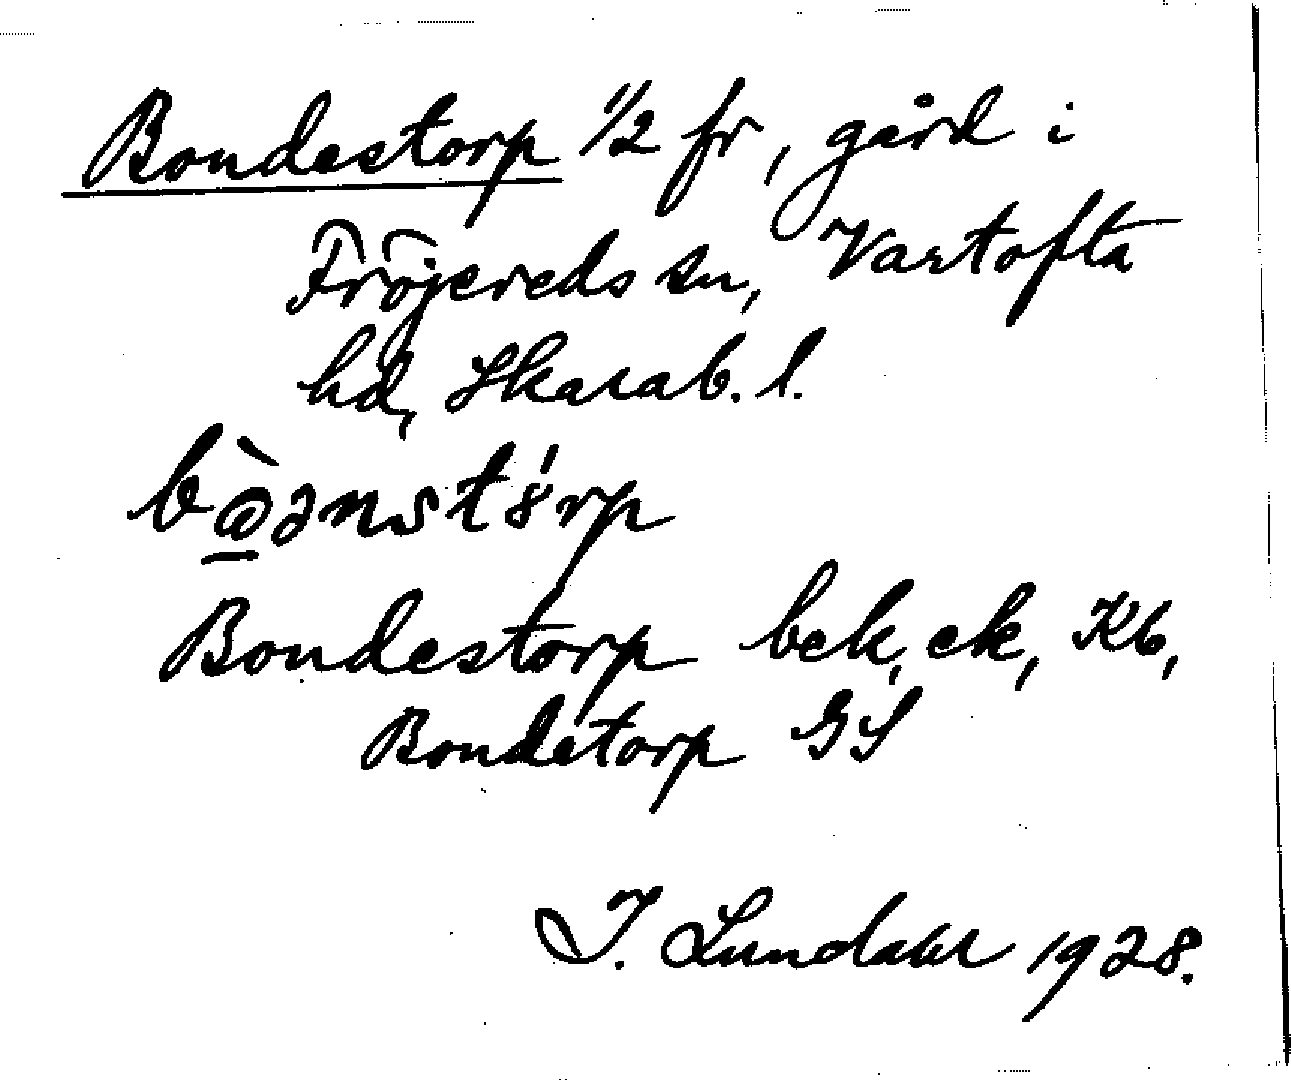 Bondestorp 1/2 fr, gård i
Fröjereds sn, Vartofta
hd, Skarab. l.
Bondestorp bek, ek, Kb,
Bondetorp GS
I. Lundahl 1928.